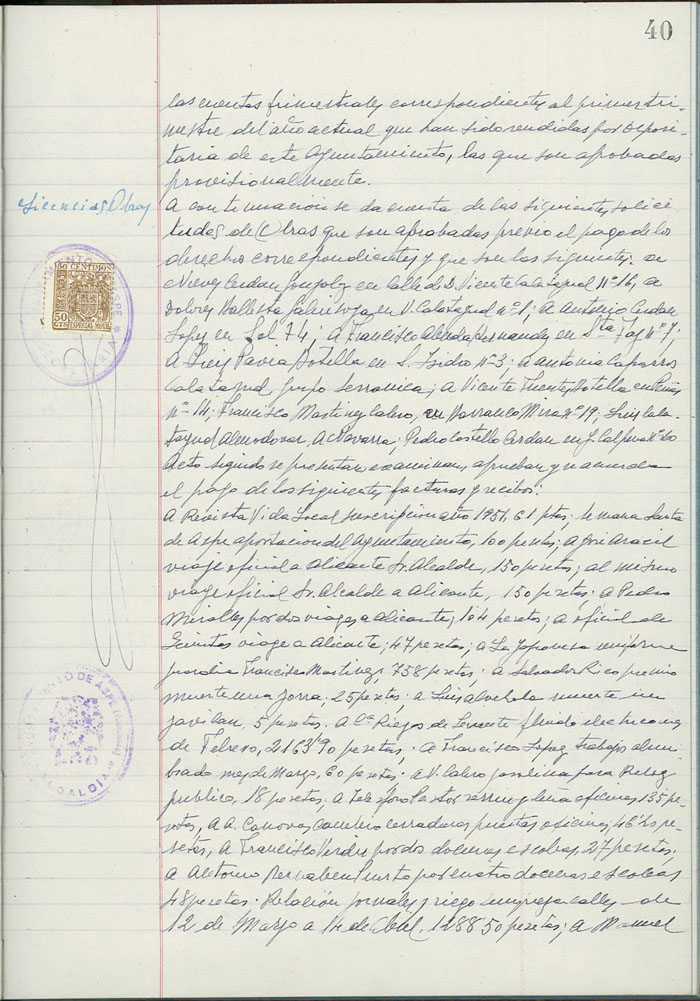 40
las cuentas trimestrales correspondientes al primer tri-
mestre del año actual que han sido rendidas por Deposi-
taria de este Ayuntamiento, las que son aprobadas
provisionalmente.
Licencias Obras
A continuacion se da cuenta de las siguientes solici-
tudes de Obras que son aprobadas previo el pago de los
derechos correspondientes y que son las siguientes: a
Nieves Cerdan Gonzalez en Calle D. Vicente Calatayud nº 16, a
Dolores Ballesta en V. Calatayud nº 1; a Antonio Cerdan
Lopez en Sol 74; a Francisco Hernandez en Sta Faz nº 7;
A Pavia Botella en S. Isidro nº 3; a Antonia Caparros
Calatayud, Grupo ; a Vicente Fuentes Botella en
nº 14; Francisco Martinez Calero, en Barranco Mira nº 19; Luis Cala-
tayud Almodovar, A Navarra; Pedro Castello Cerdan en nº 60
Acto seguido se presentan, examinan, aprueban y se acuerda
el pago de los siguientes facturas y recibos:
A Revista Vida Local suscripcion año 1951, 61 ptas; Semana Santa
de Aspe aportacion del Ayuntamiento, 100 pesetas; a José Aracil
viaje oficial a Alicante Sr. Alcalde, 150 pesetas; al mismo
viaje oficial Sr. Alcalde a Alicante, 150 pesetas; a Pedro
Miralles por dos viajes a Alicante, 104 pesetas; a oficial de
Quintas viaje a Alicante, 47 pesetas; a La Japonesa uniforme
guardia Francisco Martinez, 758 pesetas; a Salvador Rico premio
muerte una zorra, 25 pesetas; a Luis muerte un
gavilan, 5 pesetas. A Cª Riegos de Levante fluido electrico mes
de Febrero, 2163'90 pesetas; a Francisco Lopez trabajo alum-
brado mes de Marzo, 60 pesetas; a V. Calero gasolina para Reloj
publico, 18 pesetas; a Telesforo Pastor y leña oficinas 135 pe-
setas, a A. Canovas carretero cerraduras puertas oficinas, 46'20 pe-
setas, a Francisco Verdu por dos docenas escobas, 27 pesetas;
a Antonio Bernabeu por cuatro docenas escobas
48 pesetas. Relación jornales y riego limpieza calles de
12 de Marzo a 14 de Abril, 1288'50 pesetas; a Manuel
50 CENTIMOS
50
CTS
ESPECIAL MOVIL
AYUNTAMIENTO DE ASPE
SECRETARIA
AYUNTAMIENTO DE ASPE (Alicante)
ALCALDIA